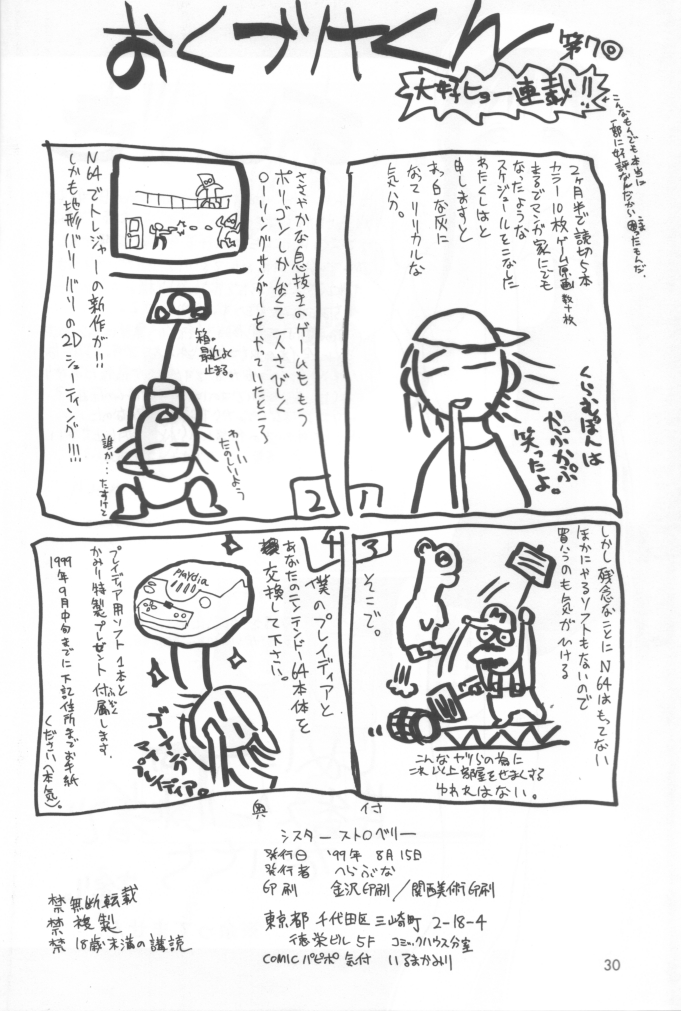 おくづけくん
第7◎
大好ヒョー連載!!
こんなもんでも本当に
一部に好評なんだから困ったもんだ。
2ヶ月半で読切5本
カラー10枚ゲーム原画数十枚
まるでマンガ家にでも
なったような
スケジュールをこなした
わたくしはと
申しますと
まっ白な灰に
なってリリカルな
気分。
くらむぽんは
かぷかぷ
笑ったよ。
1
ささやかな息抜きのゲームももう
ポリゴンしかなくて一人さびしく
ローリングサンダーをやっていたところ
N64でトレジャーの新作が!!
しかも地形バリバリの2Dシューティング!!!
箱。
最近よく
止まる。
わーい
たのしいよう
誰か…たすけて
2
しかし残念なことにN64はもってない
ほかにやるソフトもないので
買うのも気がひける
そこで。
こんなヤツらの為に
これ以上部屋をせまくする
ゆれれはない。
3
僕のプレイディアと
あなたのニンテンドー64本体を
交換して下さい。
Playdia
ゴーイング
マイ
プレイディア。
プレイディア用ソフト1本と
かみりり特製プレゼント付属します。
ふぞく
1999年9月中旬までに下記住所までお手紙
ください(本気)。
4
奥付
シスターストロベリー
発行日 '99年 8月15日
発行者 へらぶな
印刷 金沢印刷/関西美術印刷
東京都千代田区三崎町 2-18-4
徳栄ビル5F コミックハウス分室
COMICパピポ気付 いるまかみり
禁無断転載
禁複製
禁18歳未満の講読
30